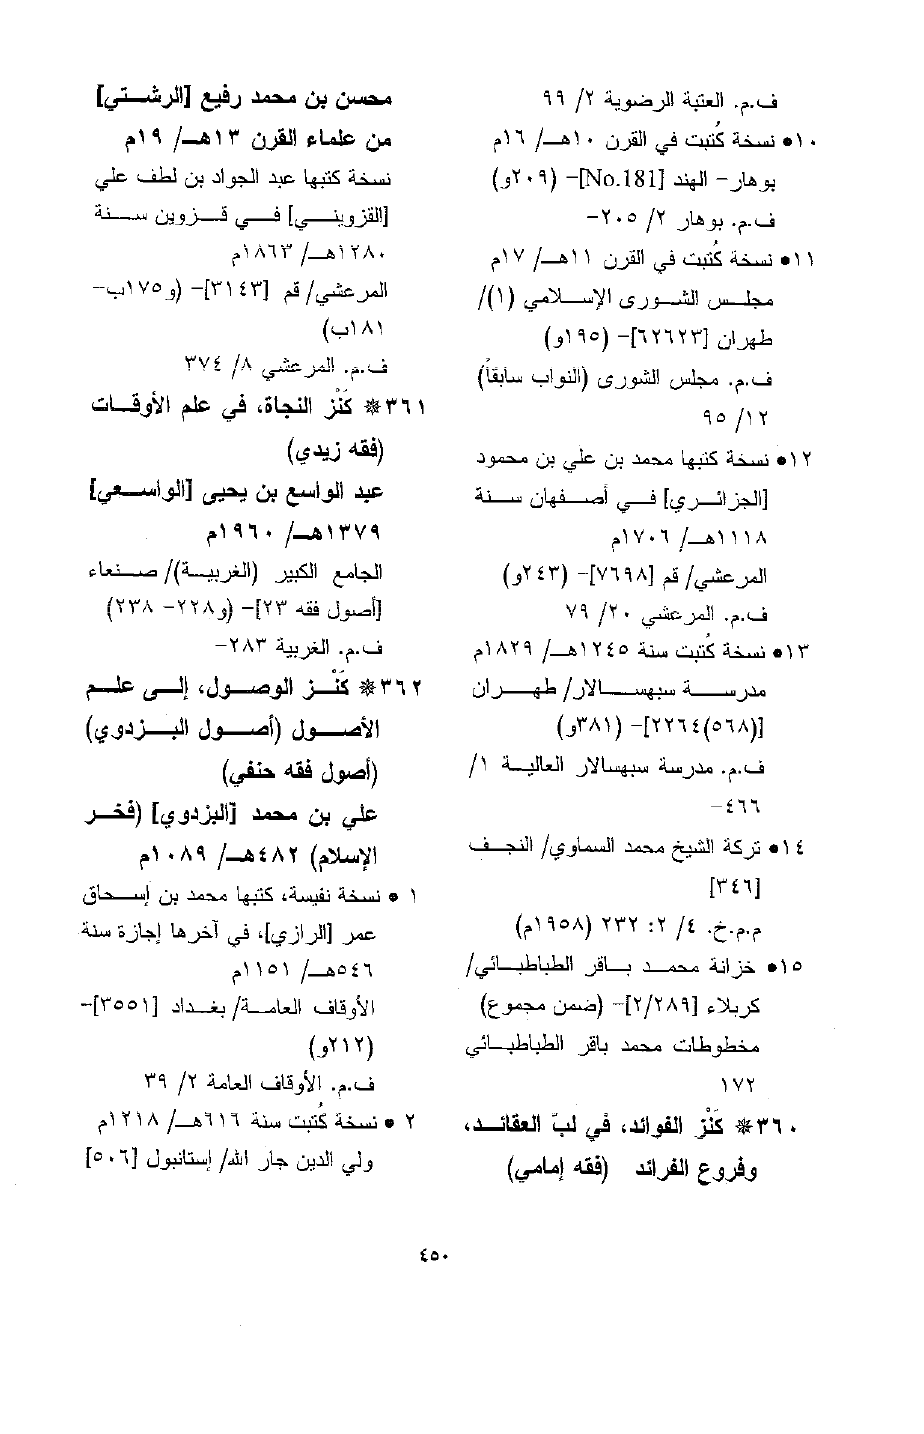 ف.م. العتبة الرضوية ٢/ ٩٩
١٠• نسخة كُتبت في القرن ١٠هـ/ ١٦م
بوهار- الهند [No.181]- (٢٠٩و)
ف.م. بوهار ٢/ ٢٠٥-
١١• نسخة كُتبت في القرن ١١هـ/ ١٧م
مجلس الشورى الإسلامي (١)/
طهران [٦٢٦٢٣]- (١٩٥و)
ف.م. مجلس الشورى (النواب سابقاً)
١٢/ ٩٥
١٢• نسخة كتبها محمد بن علي بن محمود
[الجزائري] في أصفهان سنة
١١١٨هـ/ ١٧٠٦م
المرعشي/ قم [٧٦٩٨]- (٢٤٣و)
ف.م. المرعشي ٢٠/ ٧٩
١٣• نسخة كُتبت سنة ١٢٤٥هـ/ ١٨٢٩م
مدرسة سبهسالار/ طهران
[(٥٦٨)٢٢٦٤]- (٣٨١و)
ف.م. مدرسة سبهسالار العالية ١/
٤٦٦-
١٤• تركة الشيخ محمد السماوي/ النجف
[٣٤٦]
م.م.خ. ٤/ ٢: ٢٣٢ (١٩٥٨م)
١٥• خزانة محمد باقر الطباطبائي/
كربلاء [٢/٢٨٩]- (ضمن مجموع)
مخطوطات محمد باقر الطباطبائي
١٧٢
٣٦٠* كَنْز الفوائد، في لبّ العقائد،
وفروع الفرائد (فقه إمامي)
محسن بن محمد رفيع [الرشتي]
من علماء القرن ١٣هـ/ ١٩م
نسخة كتبها عبد الجواد بن لطف علي
[القزويني] في قزوين سنة
١٢٨٠هـ/ ١٨٦٣م
المرعشي/ قم [٣١٤٣]- (و١٧٥ب-
١٨١ب)
ف.م. المرعشي ٨/ ٣٧٤
٣٦١* كَنْز النجاة، في علم الأوقات
(فقه زيدي)
عبد الواسع بن يحيى [الواسعي]
١٣٧٩هـ/ ١٩٦٠م
الجامع الكبير (الغربية)/ صنعاء
[أصول فقه ٢٣]- (و٢٢٨- ٢٣٨)
ف.م. الغربية ٢٨٣-
٣٦٢* كَنْز الوصول، إلى علم
الأصول (أصول البزدوي)
(أصول فقه حنفي)
علي بن محمد [البزدوي] (فخر
الإسلام) ٤٨٢هـ/ ١٠٨٩م
١ • نسخة نفيسة، كتبها محمد بن إسحاق
عمر [الرازي]، في آخرها إجازة سنة
٥٤٦هـ/ ١١٥١م
الأوقاف العامة/ بغداد [٣٥٥١]-
(٢١٢و)
ف.م. الأوقاف العامة ٢/ ٣٩
٢ • نسخة كُتبت سنة ٦١٦هـ/ ١٢١٨م
ولي الدين جار الله/ إستانبول [٥٠٦]
٤٥٠